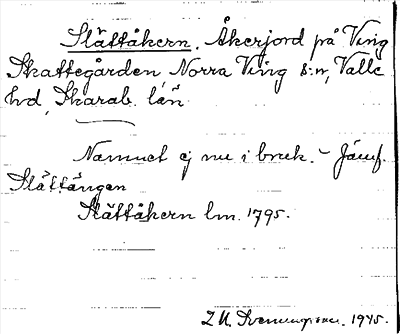 Slättåkern. Åkerjord på Ving
Skattegården Norra Ving s:n, Valle
hd, Skarab. län
Namnet ej nu i bruk. - Jämf.
Slättängen
Slättåkern lm. 1795.
1945.